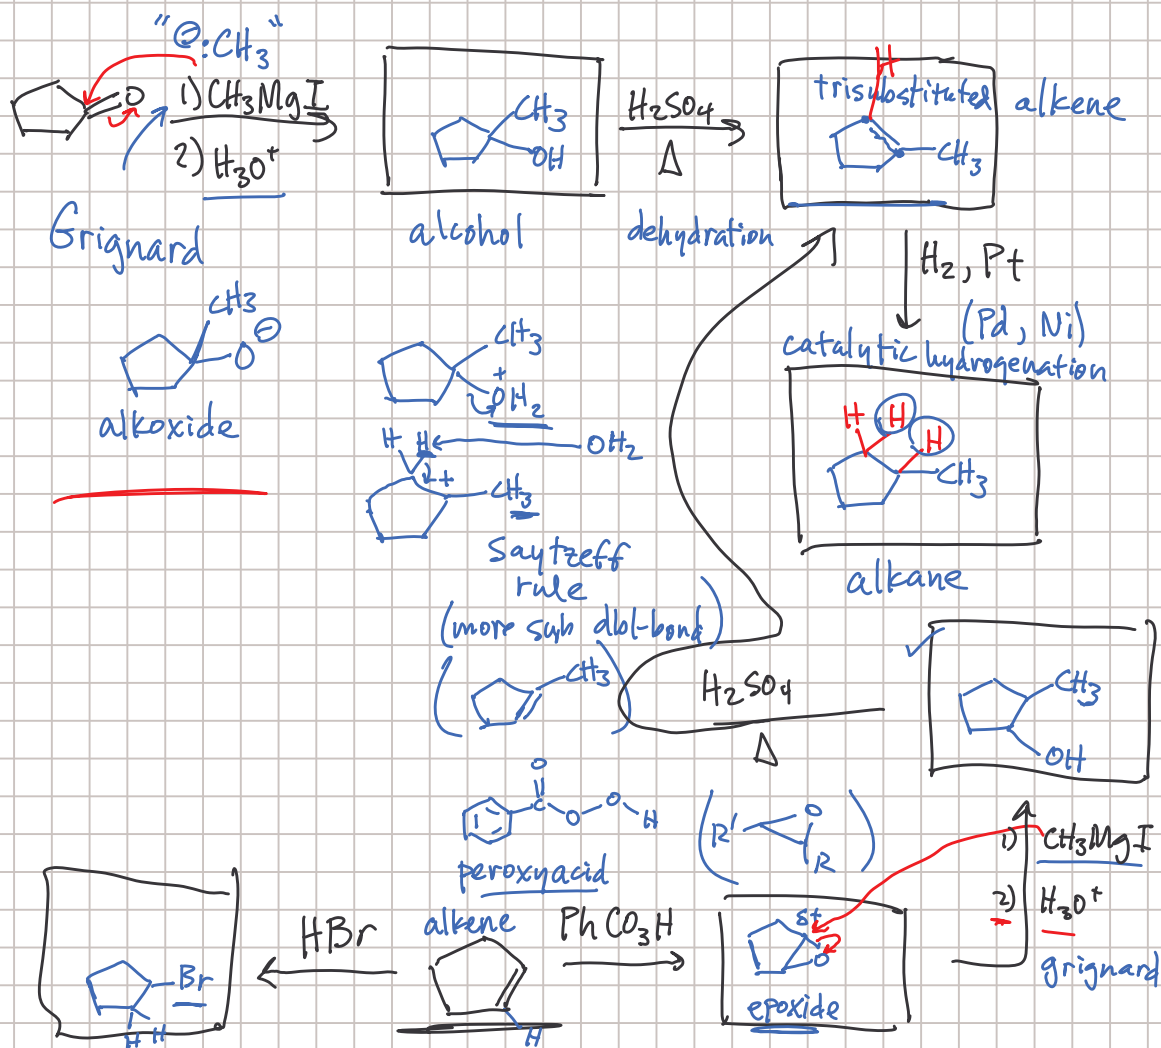 "⊖:CH3"
O
1) CH3MgI
2) H3O+
Grignard
CH3
OH
alcohol
H2SO4
Δ
dehydration
H
trisubstituted
CH3
alkene
H2, Pt
(Pd, Ni)
catalytic hydrogenation
H H H
CH3
alkane
CH3
O ⊖
alkoxide
CH3
+
OH2
H H OH2
+
CH3
Saytzeff
rule
(more sub dbl-bond)
(CH3)
H2SO4
Δ
CH3
OH
O
C
O O H
peroxyacid
(R' O
R)
1) CH3MgI
2) H3O+
grignard
alkene
H
PhCO3H
δ+
O
epoxide
HBr
Br
H H